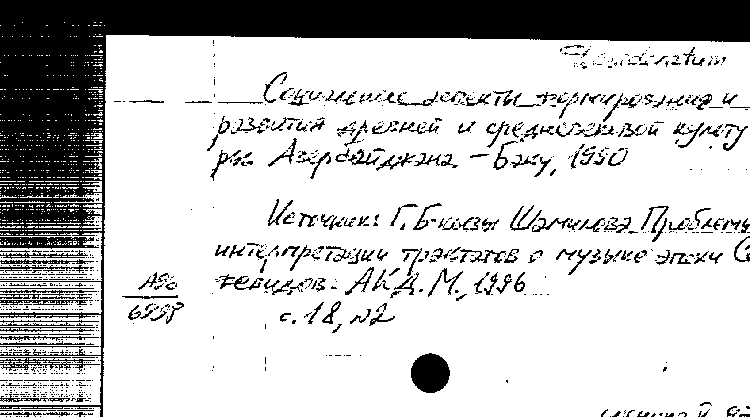 Desideratum
Социальные аспекты формирования и
развития древней и средневековой культу
ры Азербайджана. - Баку, 1990
Источник: Г. Б-кызы Шамилова Проблемы
интерпретации трактатов о музыке эпохи С
февидов. АКД. М., 1996
А96
с. 18, N2